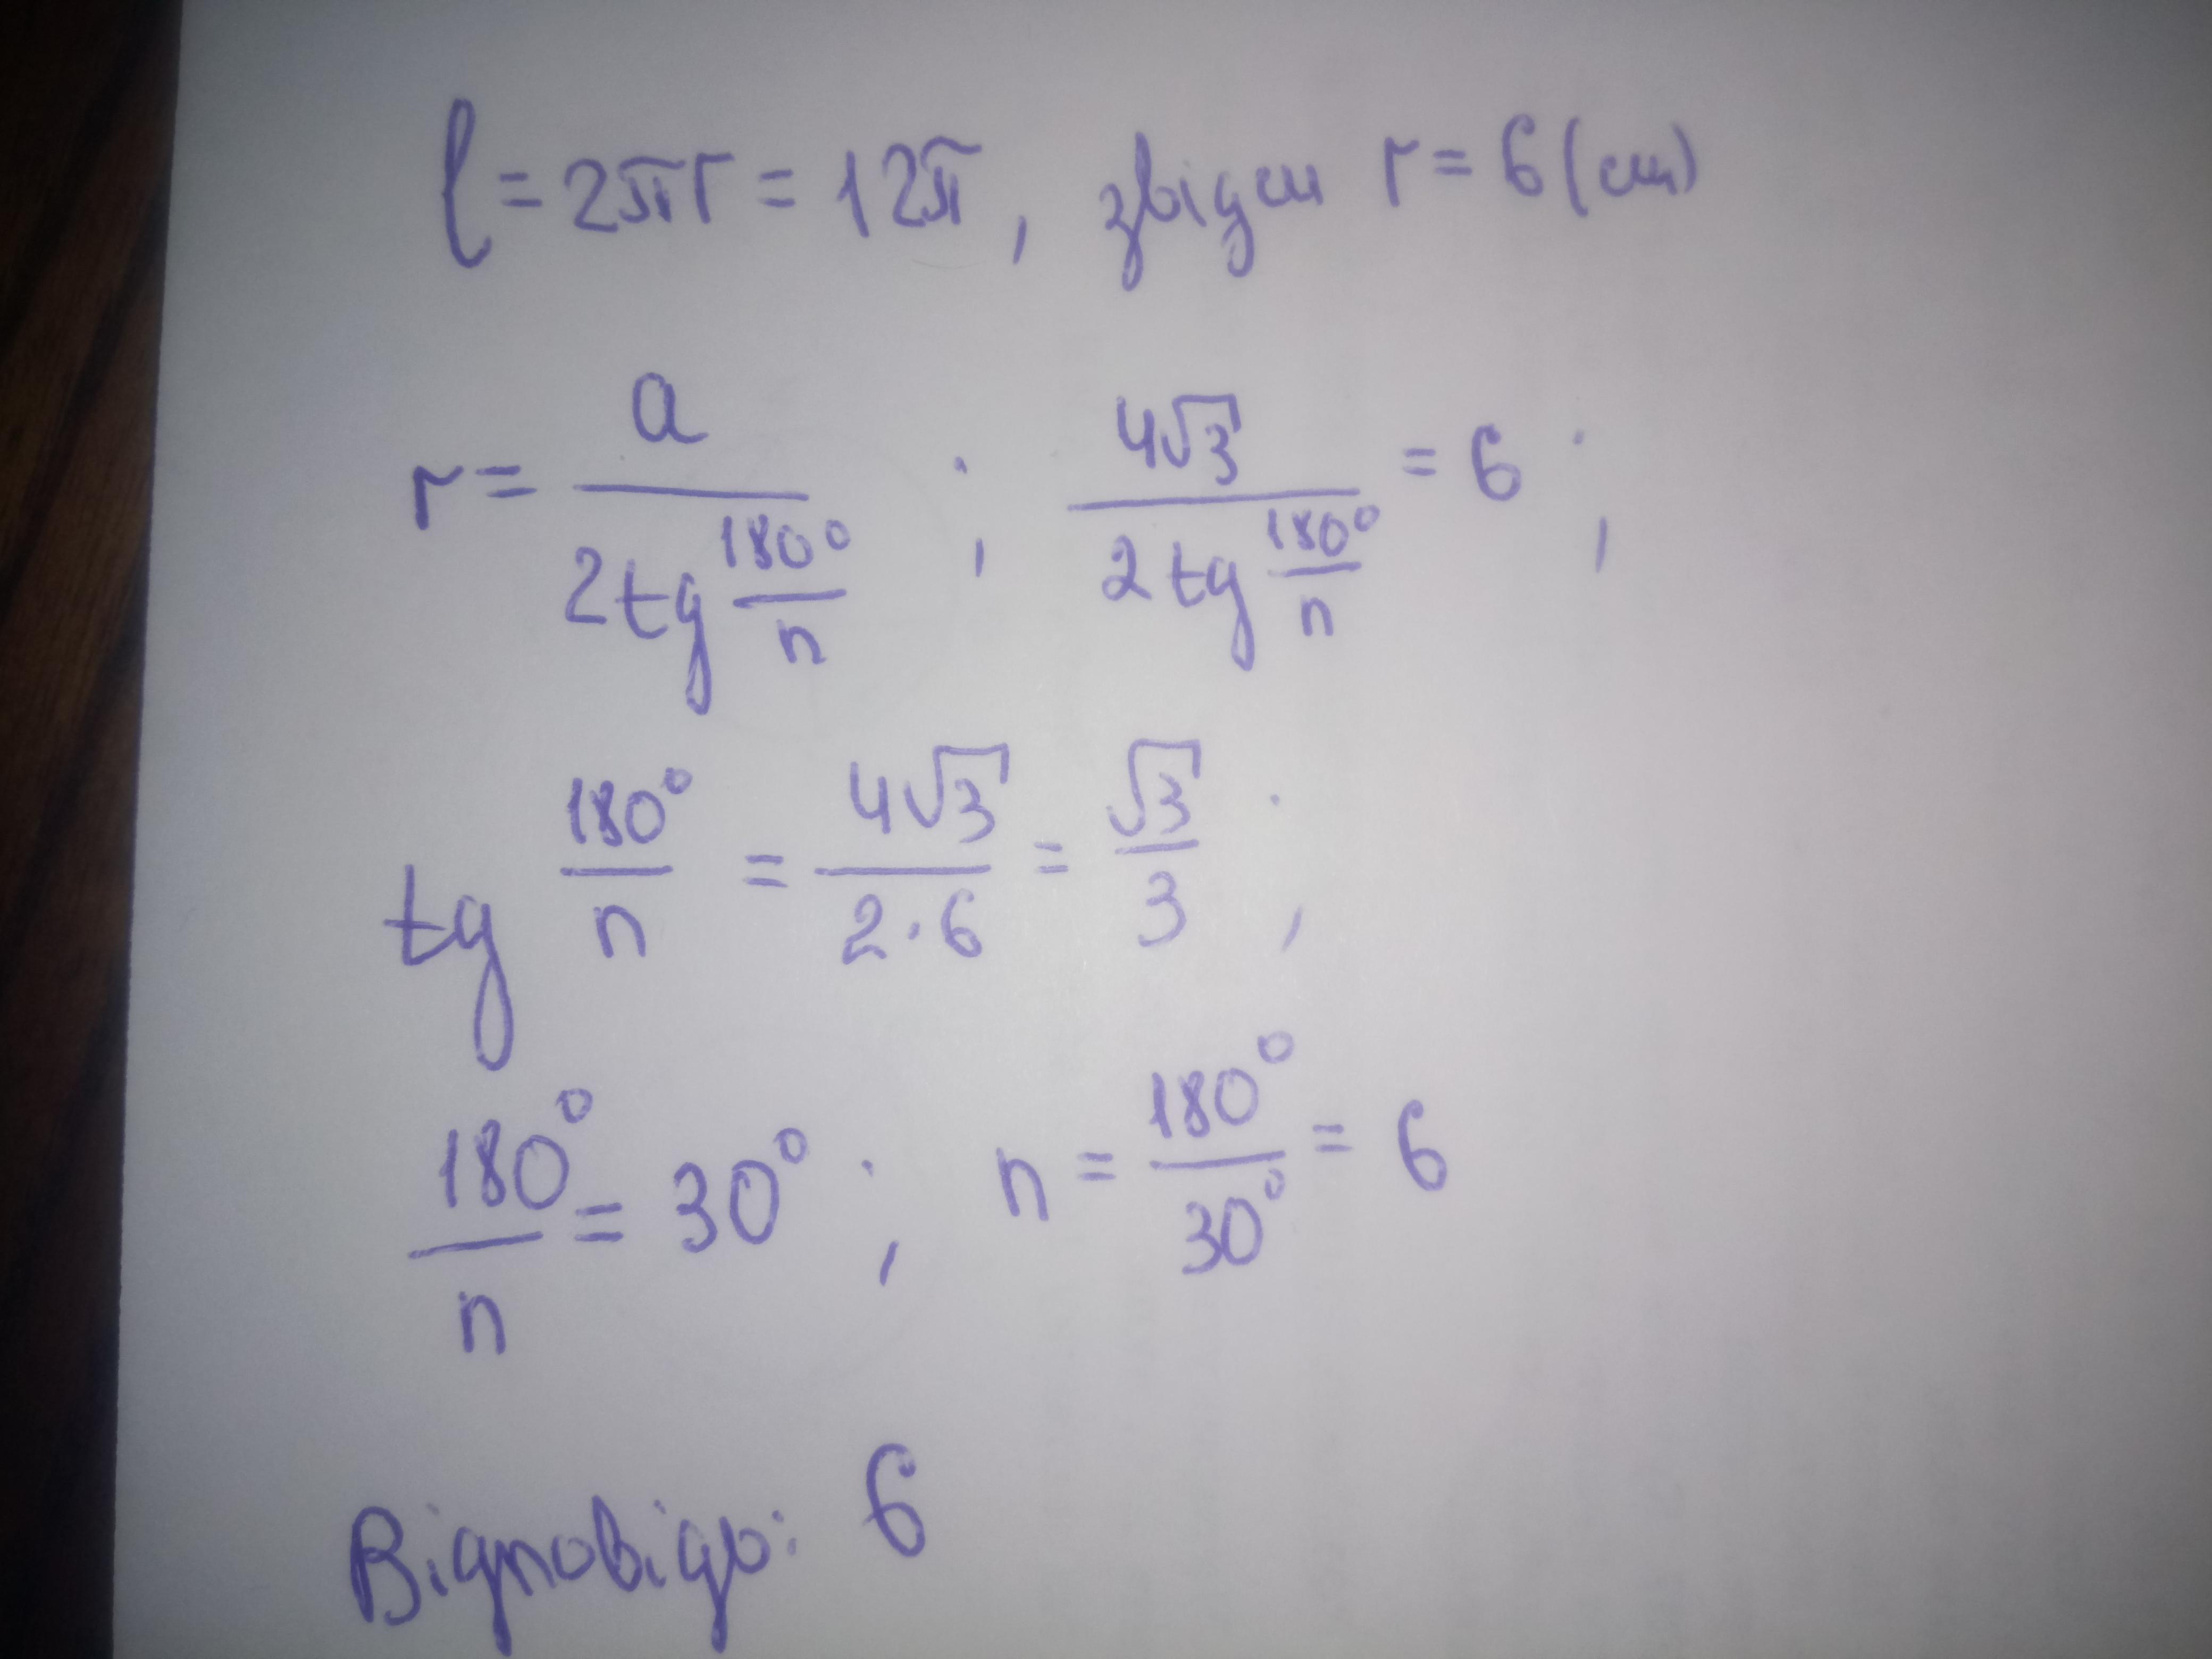 l = 2πr = 12π, звідси r = 6 (см)
r = a / (2 tg 180°/n) ; 4√3 / (2 tg 180°/n) = 6 ;
tg 180°/n = 4√3 / (2·6) = √3/3 ;
180°/n = 30° ; n = 180°/30° = 6
Відповідь: 6